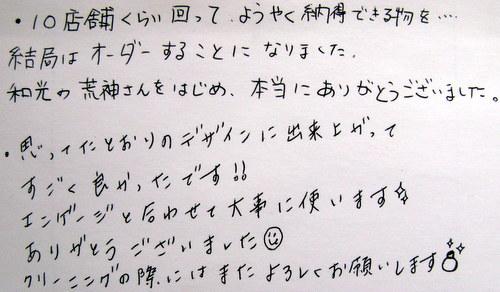 ・10店舗くらい回って、ようやく納得できる物を‥‥
結局はオーダーすることになりました。
和光の荒神さんをはじめ、本当にありがとうございました。
・思ってたとおりのデザインに出来上がって
すごく良かったです!!
エンゲージと合わせて大事に使います☆
ありがとうございました☺
クリーニングの際にはまたよろしくお願いします